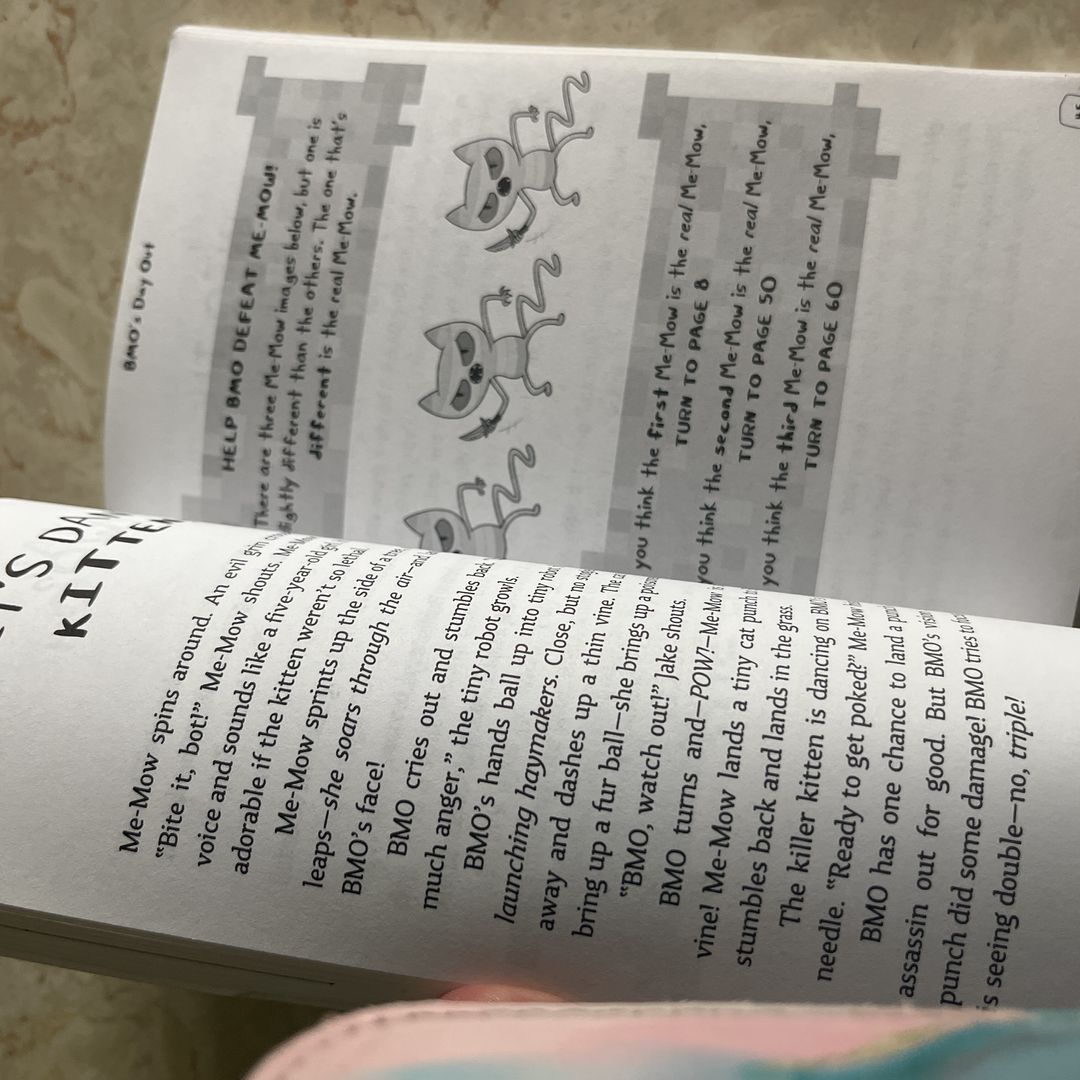 KITTEN
Me-Mow spins around. An evil grin
“Bite it, bot!” Me-Mow shouts. Me-Mow
voice and sounds like a five-year-old
adorable if the kitten weren’t so lethal
Me-Mow sprints up the side of a
leaps—she soars through the air—and
BMO’s face!
BMO cries out and stumbles back
much anger,” the tiny robot growls.
BMO’s hands ball up into tiny robot
launching haymakers. Close, but no
away and dashes up a thin vine. The
bring up a fur ball—she brings up a
“BMO, watch out!” Jake shouts.
BMO turns and—POW!—Me-Mow
vine! Me-Mow lands a tiny cat punch
stumbles back and lands in the grass.
The killer kitten is dancing on BMO
needle. “Ready to get poked?” Me-Mow
BMO has one chance to land a
assassin out for good. But BMO’s vision
punch did some damage! BMO tries to
is seeing double—no, triple!
BMO's Day Out
HELP BMO DEFEAT ME-MOW!
There are three Me-Mow images below, but one is
slightly different than the others. The one that's
different is the real Me-Mow.
you think the first Me-Mow is the real Me-Mow,
TURN TO PAGE 8
you think the second Me-Mow is the real Me-Mow,
TURN TO PAGE 50
you think the third Me-Mow is the real Me-Mow,
TURN TO PAGE 60